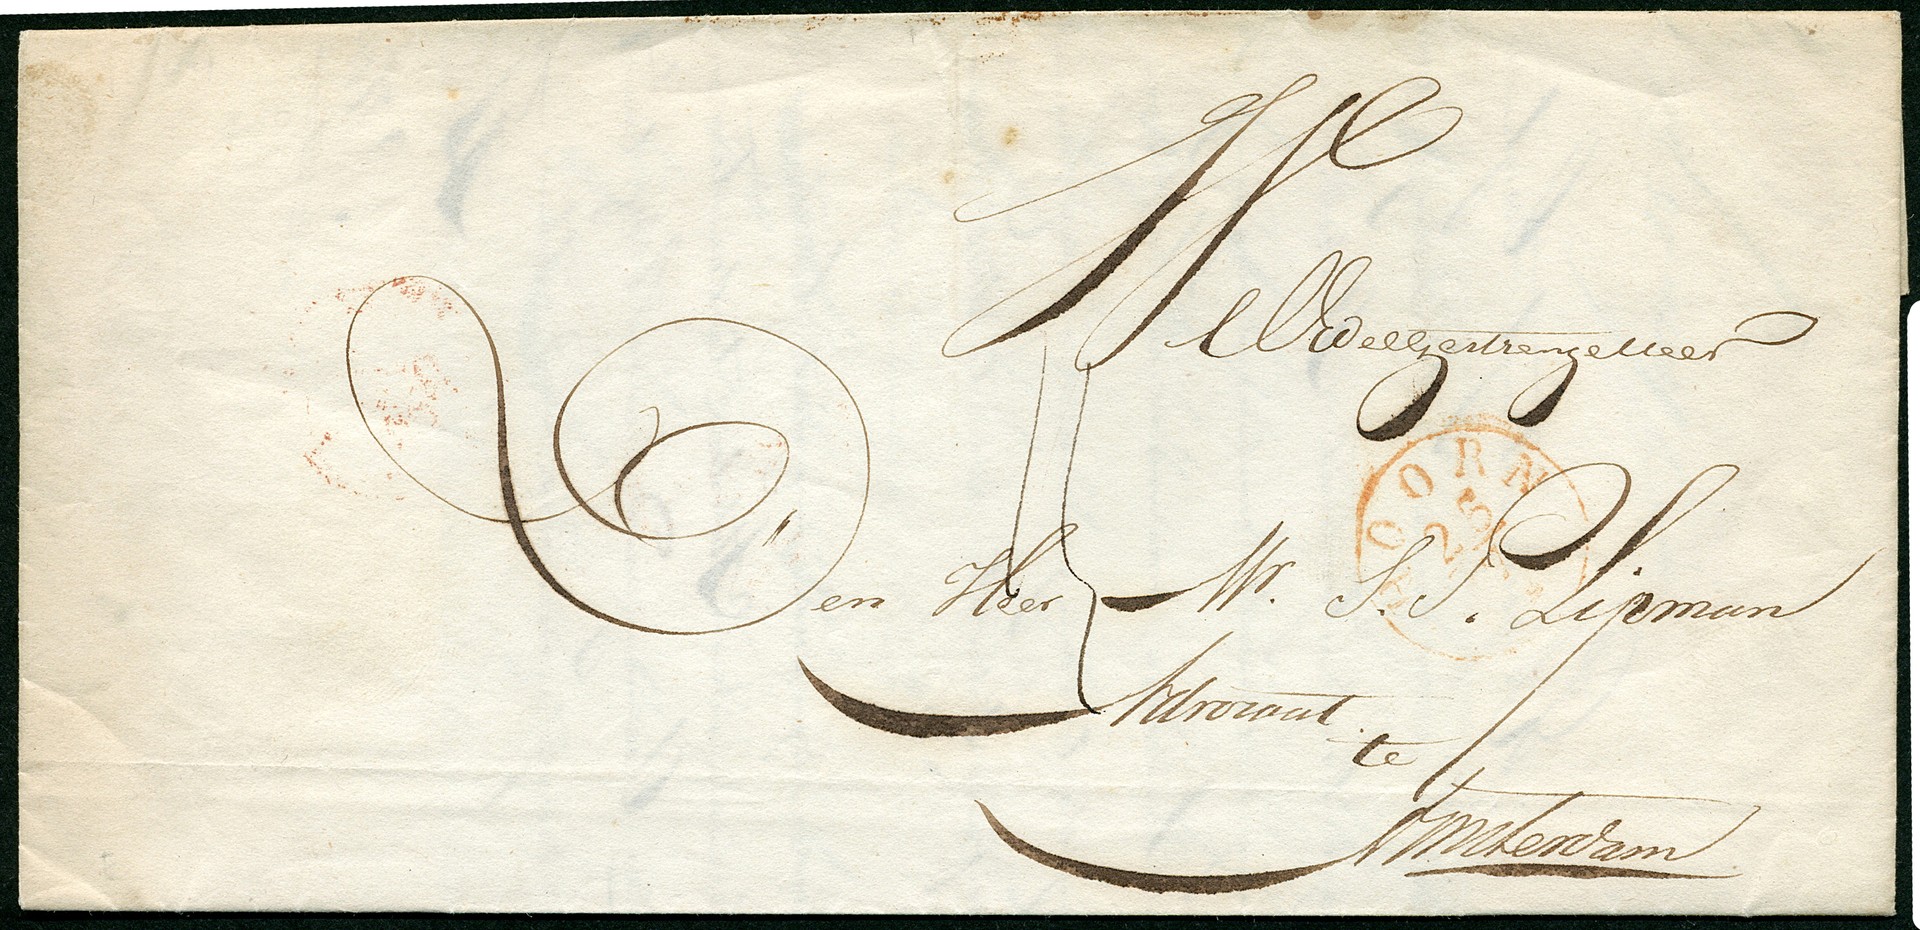 Wel Edelgestrenge Heer
Den Heer Mr. S. P. Lipman
Advocaat
te
Amsterdam
HOORN
25